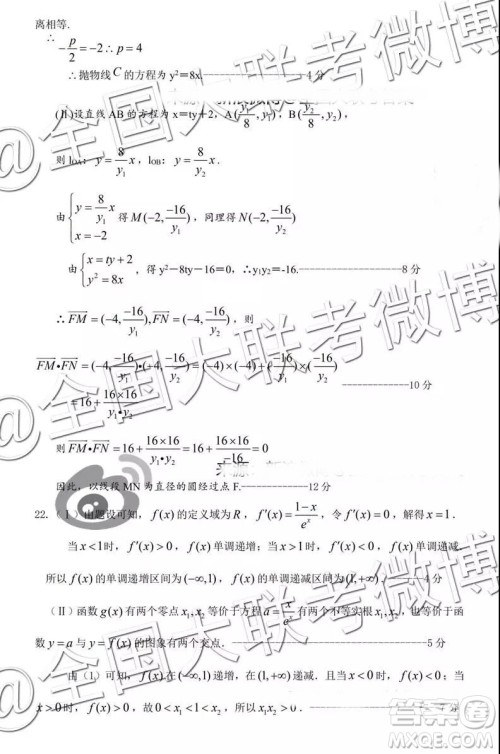 离相等.
∴ -p/2 = -2 ∴ p = 4
∴抛物线 C 的方程为 y²=8x. 4 分
(Ⅱ)设直线 AB 的方程为 x=ty+2, A(y₁²/8, y₁), B(y₂²/8, y₂),
则 l_OA: y = 8/y₁ x, l_OB: y = 8/y₂ x.
由 { y = 8/y₁ x, x = -2 得 M(-2, -16/y₁), 同理得 N(-2, -16/y₂)
由 { x = ty + 2, y² = 8x , 得 y²-8ty-16=0, ∴y₁y₂=-16. 8 分
∴ FM = (-4, -16/y₁), FN = (-4, -16/y₂), 则
FM•FN = (-4, -16/y₁)•(-4, -16/y₂) = (-4)×(-4) + (-16/y₁)×(-16/y₂)
= 16 + 16×16/y₁•y₂ 10 分
则 FM•FN = 16 + 16×16/y₁•y₂ = 16 + 16×16/-16 = 0
因此, 以线段 MN 为直径的圆过点 F. 12 分
22. (Ⅰ) 由题设可知, f(x) 的定义域为 R, f′(x) = 1-x/eˣ, 令 f′(x) = 0, 解得 x = 1.
当 x < 1 时, f′(x) > 0, f(x) 单调递增; 当 x > 1 时, f′(x) < 0, f(x) 单调递减.
所以 f(x) 的单调递增区间为 (-∞,1), 单调递减区间为 (1,+∞). 4 分
(Ⅱ) 函数 g(x) 有两个零点 x₁, x₂ 等价于方程 a = 有两个不等实根 x₁, x₂, 也等价于函
数 y = a 与 y = f(x) 的图象有两个交点. 5 分
由 (1) 可知, f(x) 在 (-∞,1) 递增, 在 (1,+∞) 递减. 且当 x < 0 时, f(x) < 0; 当
x > 0 时, f(x) > 0, 故 0 < x₁ < 1 < x₂, 所以 x₁x₂ > 0. 7 分
@全国大联考微博
@全国大联考微博
@全国大联考微博
答案圈
MXQE.COM